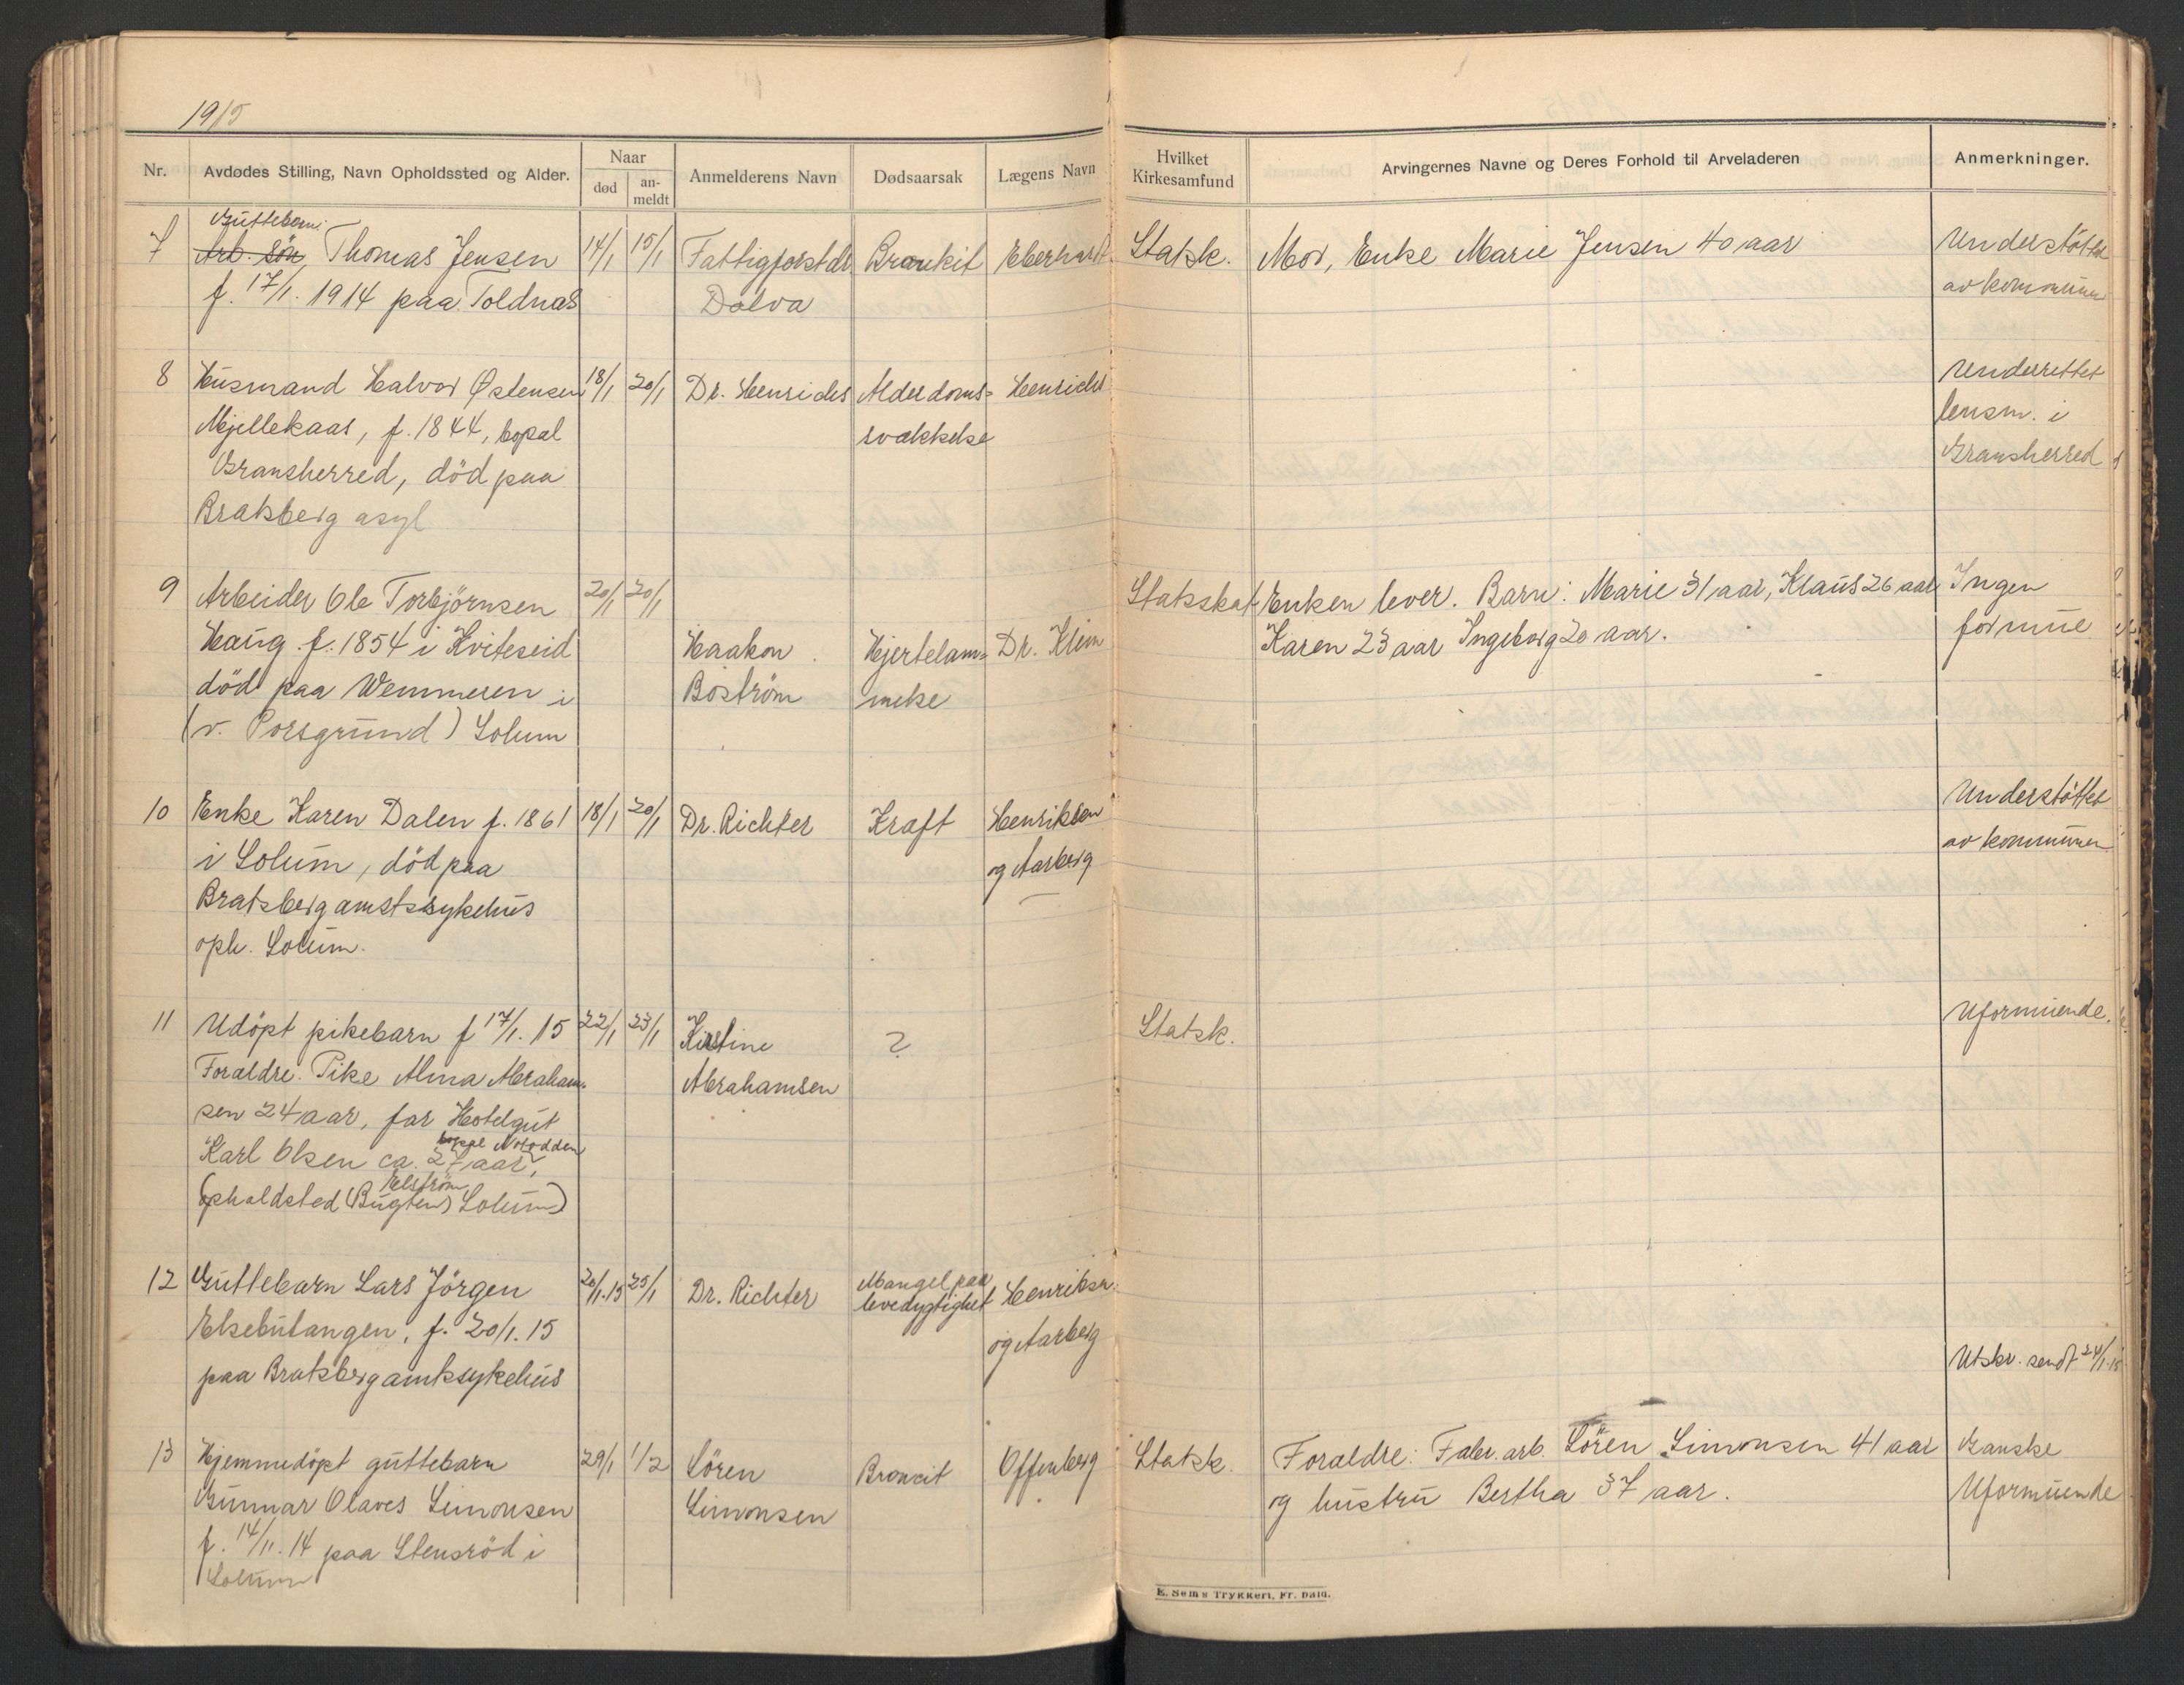 1915
Nr.
Avdødes Stilling, Navn Opholdssted og Alder.
Naar
død
an-
meldt
Anmelderens Navn
Dødsaarsak
Lægens Navn
Hvilket
Kirkesamfund
Arvingernes Navne og Deres Forhold til Arveladeren
Anmerkninger.
Guttebarn
7 Arb. sön Thomas Jensen 14/1 15/1 Fattigforstdr Bronkit Eberhardt Statsk. Mor, Enke Marie Jensen 40 aar Understöttet
f. 17/1. 1914 paa Toldnæs Dolva av kommunen
8 Husmand Halvor Østensen 18/1 20/1 Dr. Henrichs Alderdoms= Henrichs Underrettet
Mjellekaas, f. 1844, bopæl svækkelse lensm. i
Gransherred, död paa Gransherred
Bratsberg asyl
9 Arbeider Ole Torbjörnsen 20/1 20/1 Statsk Enken lever. Barn: Marie 31 aar, Klaus 26 aar Ingen
Haug f. 1854 i Kviteseid Haakon Hjertelam= Dr. Karen 23 aar Ingeborg 20 aar. formue
död paa Wemmeren i Boström melse
(v. Porsgrund) Solum
10 Enke Karen Dalen f. 1861 18/1 20/1 Dr. Richter Kræft Henriksen Understöttet
i Solum, död paa og Aarberg av kommunen
Bratsberg amstssykehus
oph. Solum.
11 Udöpt pikebarn f 17/1. 15 22/1 23/1 Kirstine ? Statsk. Uformuende.
Forældre: Pike Alma Abraham= Abrahamsen
sen 24 aar, far Hotelgut
bopæl Notodden
Karl Olsen ca. 27 aar,
Elström
(opholdsted (Bugten) Solum)
12 Guttebarn Lars Jörgen 20/1.15 25/1 Dr. Richter Mangel paa Henriksen
levedygtighet
Elsebutangen, f. 20/1. 15 og Aarberg
paa Bratsberg amtssykehus Utskr. sendt 24/1.15
13 Hjemmedöpt guttebarn 29/1 1/2 Sören Broncit Offenberg Statsk. Forældre: Fabr. arb. Sören Simonsen 41 aar Ganske
Gunnar Olaves Simonsen Simonsen og hustru Bertha 37 aar. Uformuende
f. 14/11. 14 paa Stensröd i
Solum
E. Sems Trykkeri, Fr. hald.